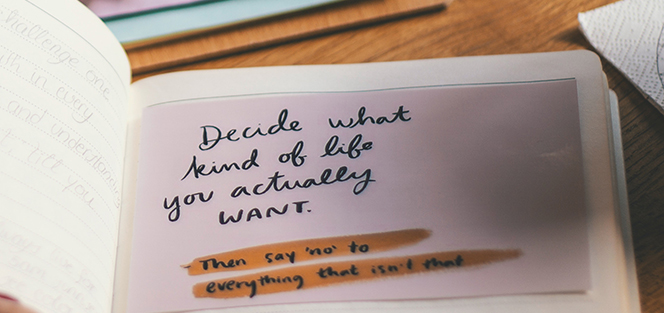 challenge one
in every
and understanding
Decide what
kind of life
you actually
WANT.
- Then say 'no' to
everything that isn't that